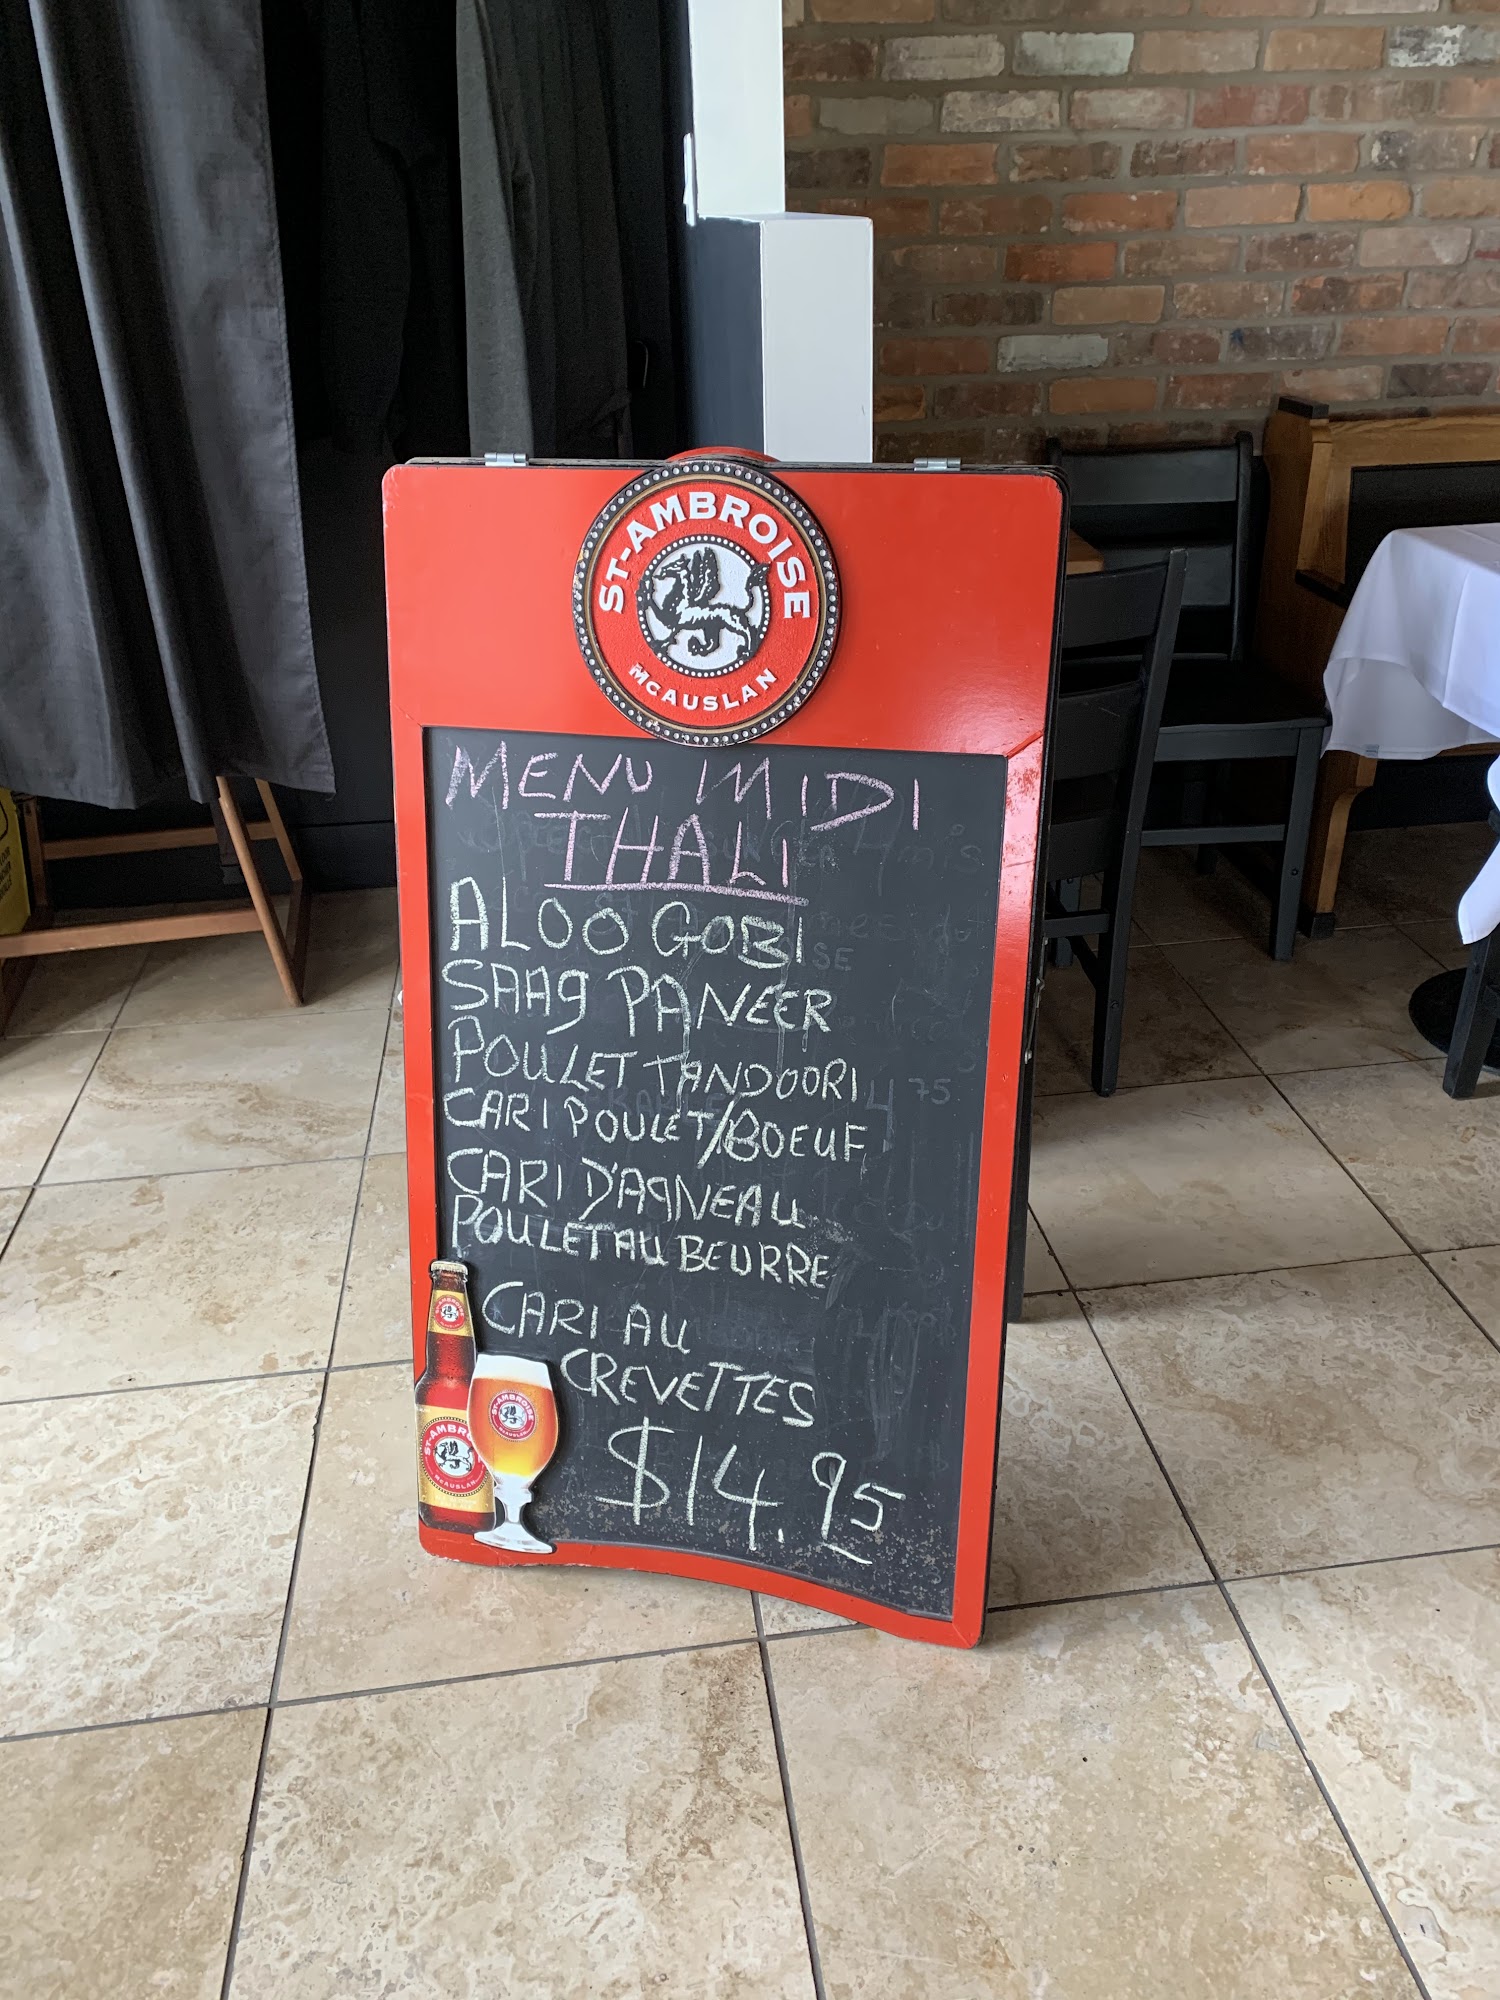 ST-AMBROISE
McAUSLAN
MENU MIDI
THALI
ALOO GOBI
SAAg PANEER
POULET TANDOORI
CARI POULET/BOEUF
CARI D'AgNEAU
POULET AU BEURRE
CARI AU
CREVETTES
$14.95
ST-AMBROISE
McAUSLAN